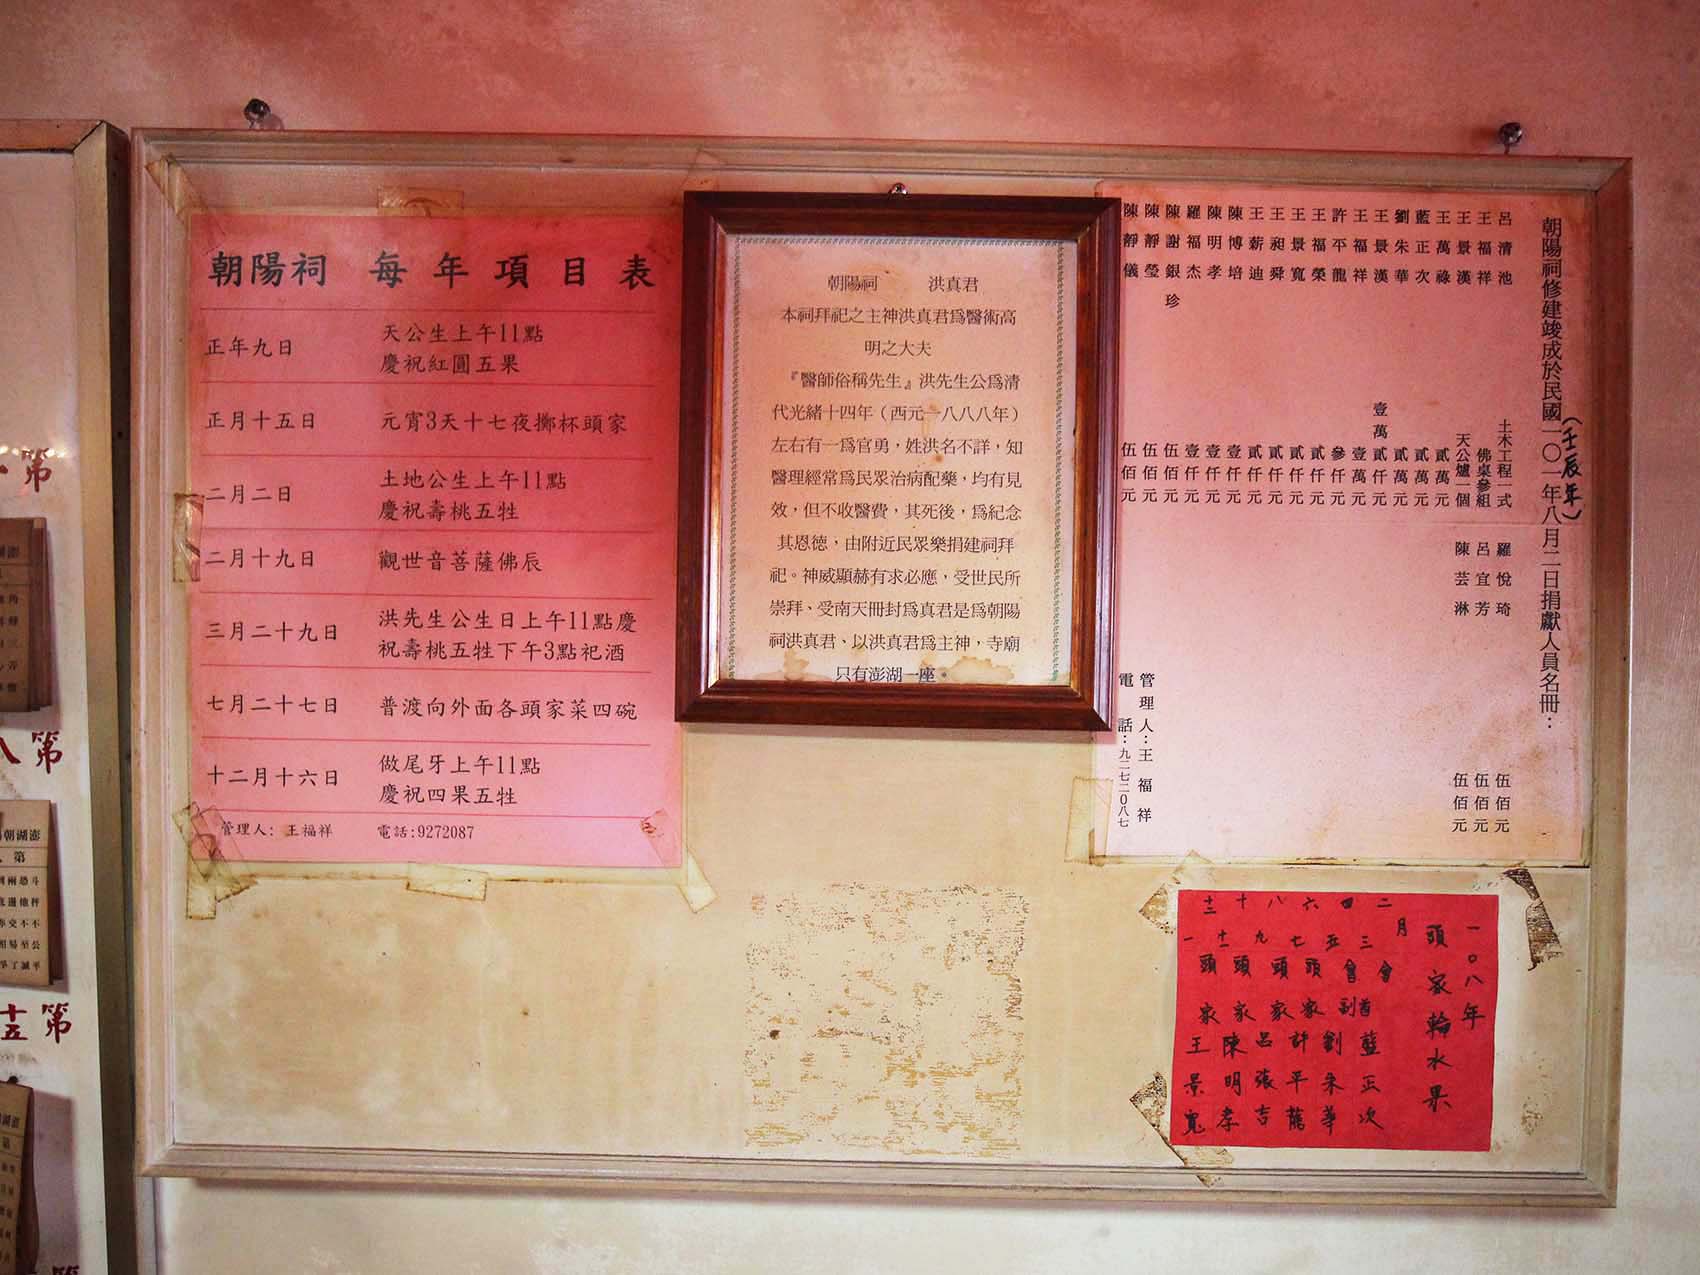 朝陽祠 每年項目表
正年九日 天公生上午11點
慶祝紅圓五果
正月十五日 元宵3天十七夜擲杯頭家
二月二日 土地公生上午11點
慶祝壽桃五牲
二月十九日 觀世音菩薩佛辰
三月二十九日 洪先生公生日上午11點慶
祝壽桃五牲下午3點祀酒
七月二十七日 普渡向外面各頭家菜四碗
十二月十六日 做尾牙上午11點
慶祝四果五牲
管理人: 王福祥 電話:9272087
朝陽祠 洪真君
本祠拜祀之主神洪真君爲醫術高
明之大夫
『醫師俗稱先生』洪先生公爲清
代光緒十四年（西元一八八八年）
左右有一爲官勇，姓洪名不詳，知
醫理經常爲民眾治病配藥，均有見
效，但不收醫費，其死後，爲紀念
其恩德，由附近民眾樂捐建祠拜
祀。神威顯赫有求必應，受世民所
崇拜、受南天冊封爲真君是爲朝陽
祠洪真君、以洪真君爲主神，寺廟
只有澎湖一座。
朝陽祠修建竣成於民國一〇一年八月二日捐獻人員名冊：
（壬辰年）
呂清池 土木工程一式 羅悅琦 伍佰元
王福祥 佛桌參組 呂宜芳 伍佰元
王景漢 天公爐一個 陳芸淋 伍佰元
王萬祿 貳萬元
藍正次 貳萬元
劉朱華 貳萬元
王景漢 壹萬貳仟元
王福祥 壹萬元
許平龍 參仟元
王福榮 貳仟元
王景寬 貳仟元
王昶舜 貳仟元
王薪迪 貳仟元
陳博培 壹仟元
陳明孝 壹仟元
羅福杰 壹仟元
陳謝銀珍 伍佰元
陳靜瑩 伍佰元
陳靜儀 伍佰元
管理人：王福祥
電話：九二七二0八七
一〇八年
頭家輪水果
月
二 三 會首 藍正次
四 五 會副 劉朱華
六 七 頭家 許平龍
八 九 頭家 呂張吉
十 十一 頭家 陳明孝
十二 一 頭家 王景寬
第
第八
第
十五
第